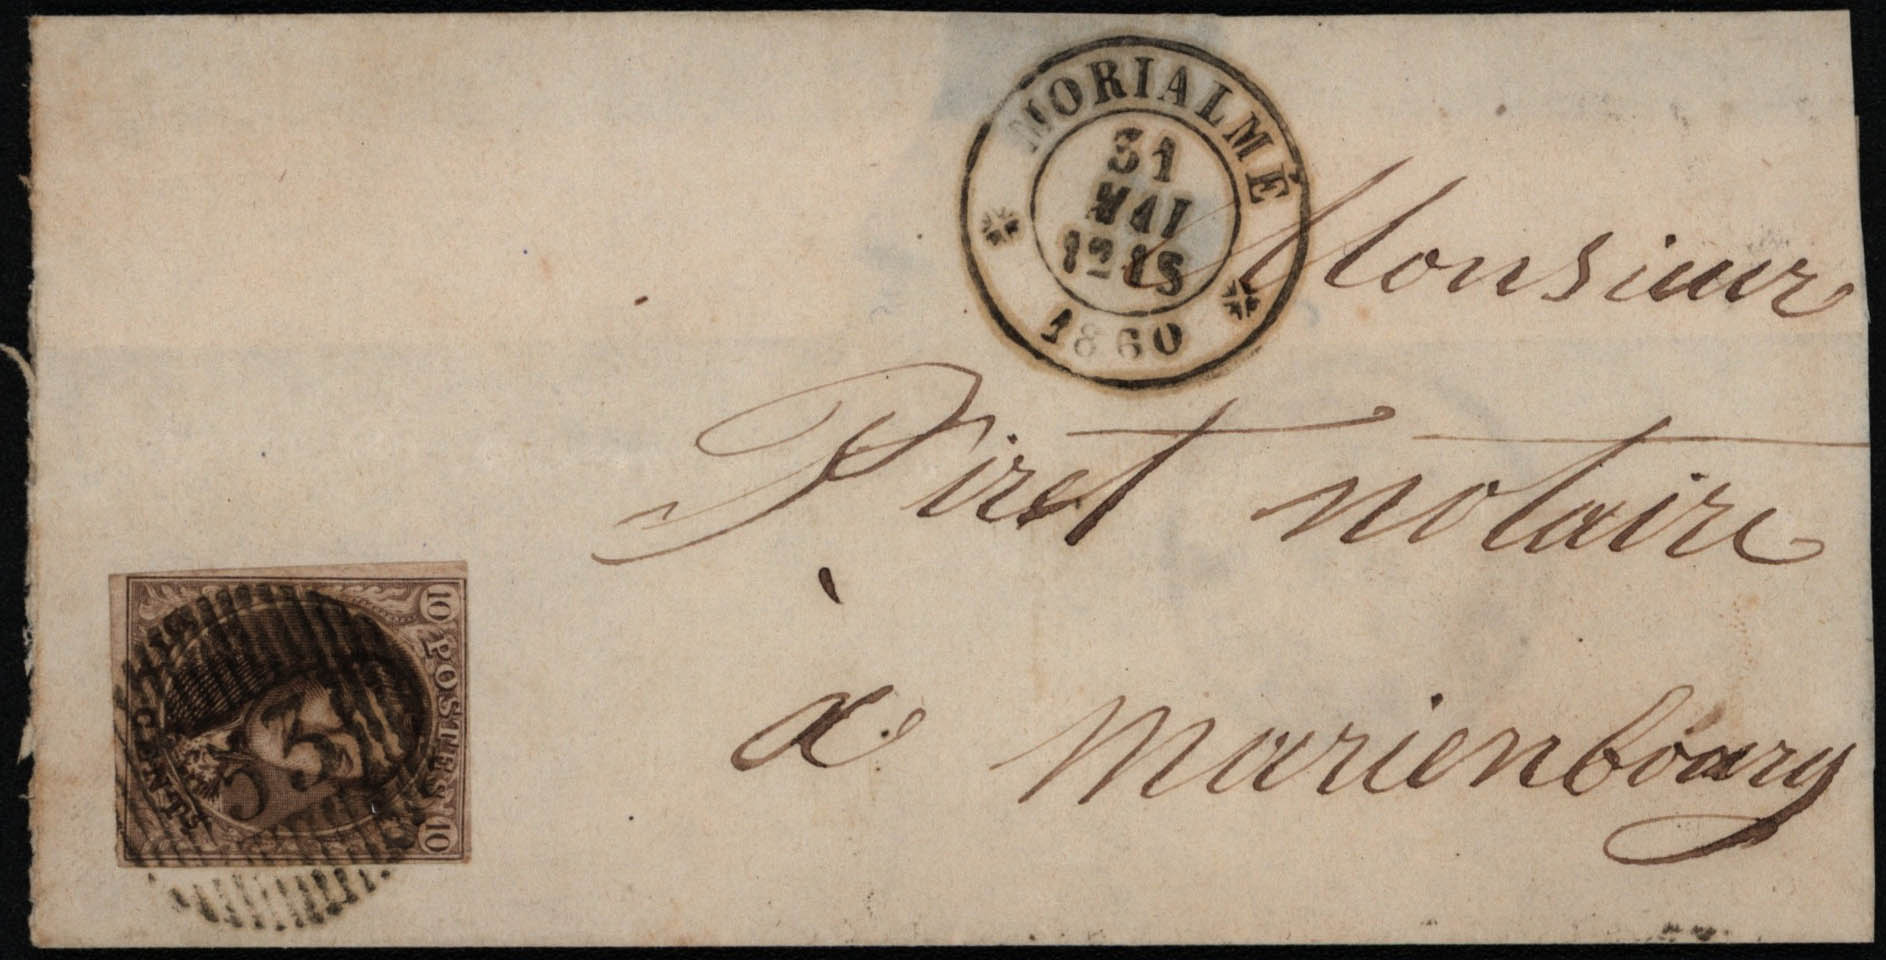 MORIALMÉ
31
MAI
12 1S
1860
Monsieur
Piret notaire
à Marienbourg
10 POSTES 10